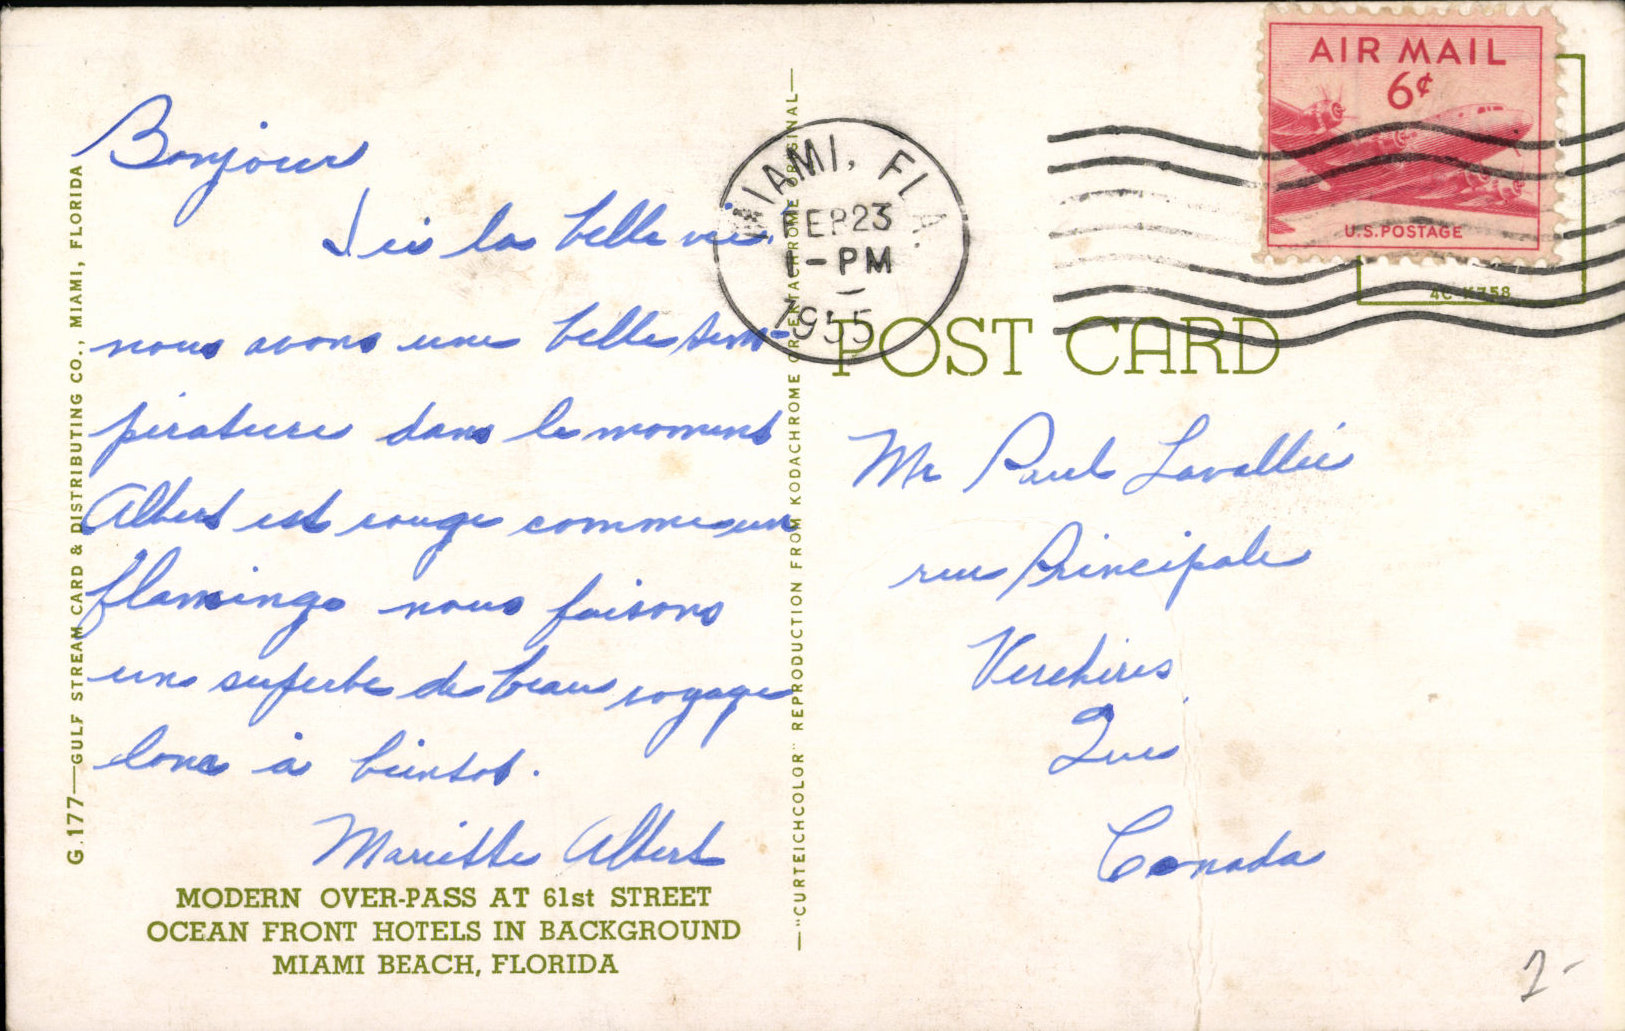 Bonjour
Ici la belle vie.
nous avons une belle tem-
pérature dans le moment
Albert est rouge comme un
flamingo nous faisons
une superbe de beau voyage
donc à bientot.
Mariette Albert
MODERN OVER-PASS AT 61st STREET
OCEAN FRONT HOTELS IN BACKGROUND
MIAMI BEACH, FLORIDA
G.177—GULF STREAM CARD & DISTRIBUTING CO., MIAMI, FLORIDA
—"CURTEICHCOLOR" REPRODUCTION FROM KODACHROME OR EKTACHROME ORIGINAL—
MIAMI, FLA.
FEB 23
1-PM
1955
AIR MAIL
6¢
U.S. POSTAGE
POST CARD
Mr Paul Lavallée
rue Principale
Verchères
Que
Canada
2-